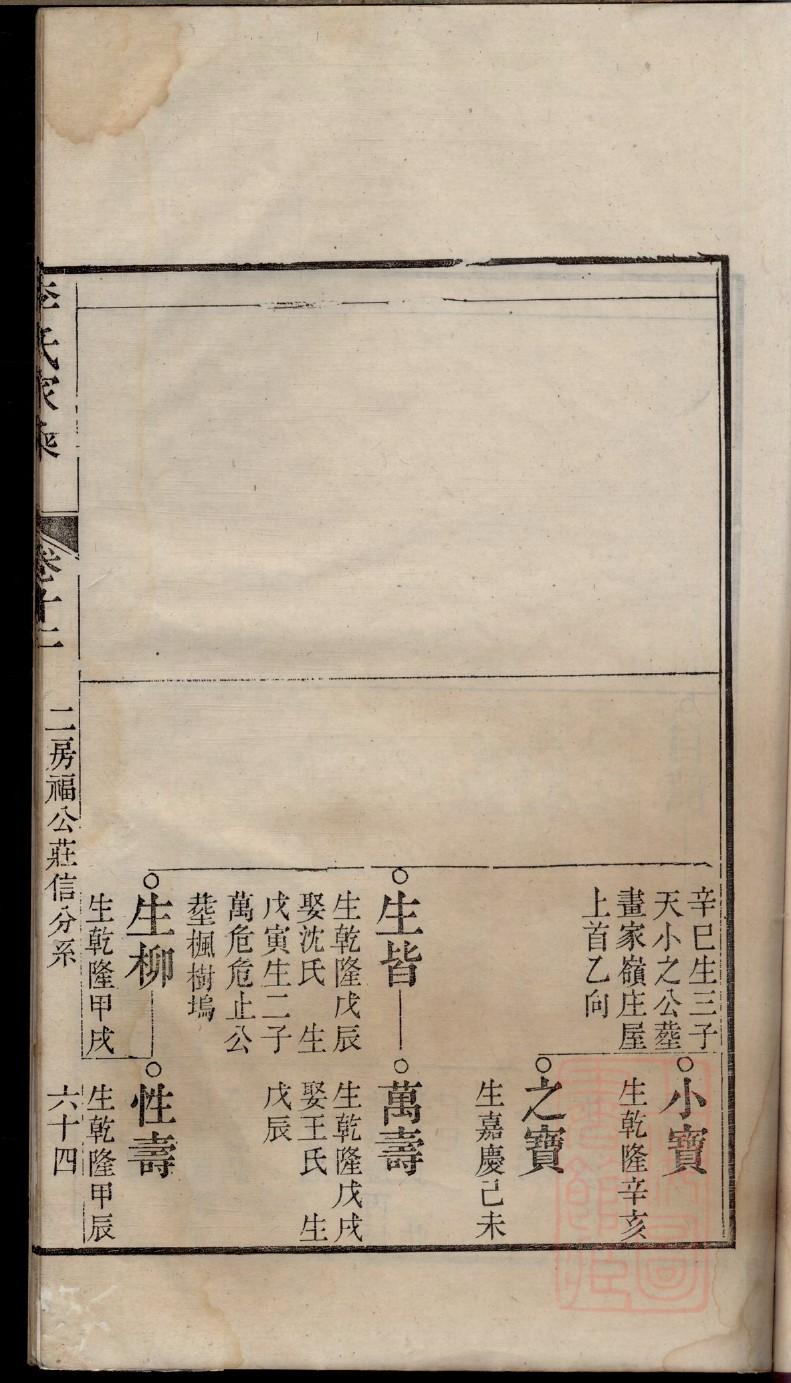 辛巳生三子
天小之公塟
畫家嶺庄屋
上首乙向
小寶
生乾隆辛亥
之寶
生嘉慶己未
生皆
生乾隆戊辰
娶沈氏　生
戊寅生二子
萬危危止公
塟楓樹塢
萬壽
生乾隆戊戌
娶王氏　生
戊辰
生柳
生乾隆甲戌
性壽
生乾隆甲辰
李氏家乘
卷十二
二房福公莊信分系
六十四